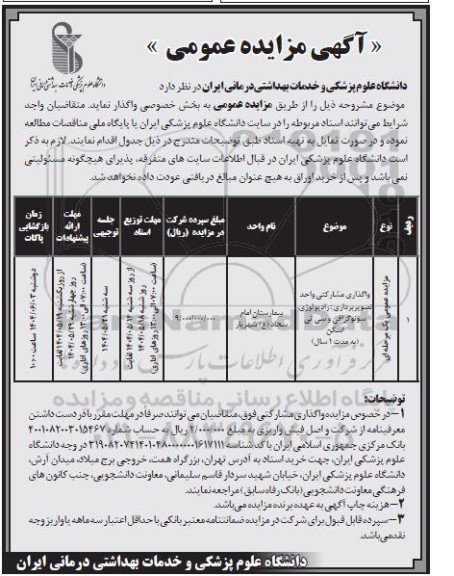 « آگهی مزایده عمومی »
دانشگاه علوم پزشکی و خدمات بهداشتی درمانی ایران در نظر دارد
موضوع مشروحه ذیل را از طریق مزایده عمومی به بخش خصوصی واگذار نماید. متقاضیان واجد
شرایط می توانند اسناد مربوطه را در سایت دانشگاه علوم پزشکی ایران یا پایگاه ملی مناقصات مطالعه
نموده و در صورت تمایل به تهیه اسناد طبق توضیحات مندرج در ذیل جدول اقدام نمایند. لازم به ذکر
است دانشگاه علوم پزشکی ایران در قبال اطلاعات سایت های متفرقه، پذیرای هیچگونه مسئولیتی
نمی باشد و پس از خرید اوراق به هیچ عنوان مبالغ دریافتی عودت داده نخواهد شد.
ردیف
نوع
موضوع
نام واحد
مبلغ سپرده شرکت در مزایده (ریال)
مهلت توزیع اسناد
جلسه توجیهی
مهلت ارائه پیشنهادات
زمان بازگشایی پاکات
مزایده عمومی یک مرحله ای
واگذاری مشارکتی واحد
تصویربرداری: رادیولوژی،
سونوگرافی و سی تی
اسکن
(به مدت ۱ سال)
بیمارستان امام
سجاد (ع) شهریار
سه شنبه ۱۴۰۴/۰۵/۲۱
دوشنبه ۱۴۰۴/۰۶/۰۳ ساعت ۱۰:۰۰
توضیحات:
۱- در خصوص مزایده واگذاری مشارکتی فوق، متقاضیان می توانند صرفا در مهلت مقرر با در دست داشتن
معرفینامه از شرکت و اصل فیش واریزی به مبلغ ۲/۰۰۰/۰۰۰ ریال به حساب شماره
بانک مرکزی جمهوری اسلامی ایران با کد شناسه در وجه دانشگاه
علوم پزشکی ایران، جهت خرید اسناد به آدرس تهران، بزرگراه همت، خروجی برج میلاد، میدان آرش،
دانشگاه علوم پزشکی ایران، خیابان شهید سردار قاسم سلیمانی، معاونت دانشجویی، جنب کانون های
فرهنگی معاونت دانشجویی (بانک رفاه سابق) مراجعه نمایند.
۲- هزینه چاپ آگهی به عهده برنده مزایده می باشد.
۳- سپرده قابل قبول برای شرکت در مزایده ضمانتنامه معتبر بانکی با حداقل اعتبار سه ماهه یا واریز وجه
نقد می باشد.
دانشگاه علوم پزشکی و خدمات بهداشتی درمانی ایران